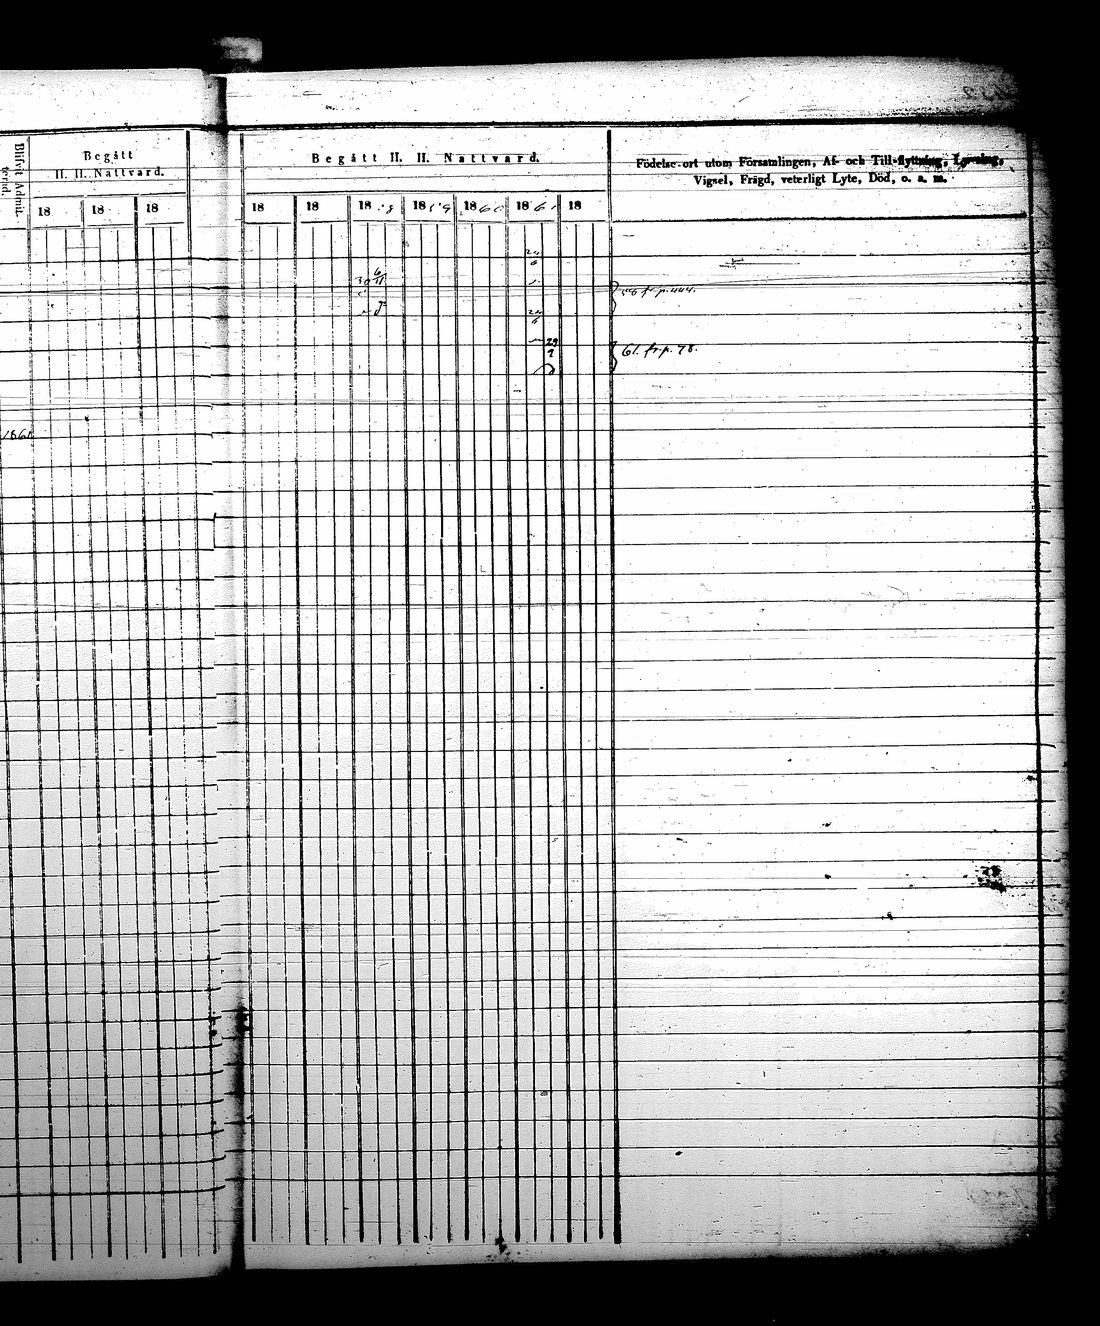 Blifvit Admit-
terad.
Begått
H. H. Nattvard.
18 18 18
1861.
Begått H. H. Nattvard.
18 18 18 58 1859 1860 1861 18
Födelse-ort utom Församlingen, Af- och Till-flyttning, Lysning,
Vigsel, Frägd, veterligt Lyte, Död, o. s. m.
24
6
6
30 11
56 fr. p. 444.
24
6
29
61. fr. p. 78.